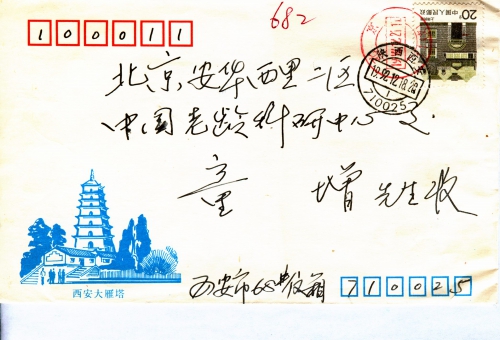 682
100011
20分
中国人民邮政
陕西西安
1992.12.18.20
710025
北京安华西里二区
中国老龄科研中心
童 增 先生收
西安大雁塔
西安市68信箱
710025